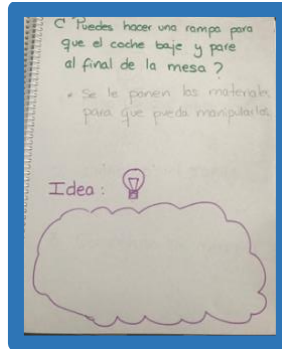 ¿Puedes hacer una rampa para
que el coche baje y pare
al final de la mesa?
• Se le ponen los materiales
para que pueda manipularlos
Idea: